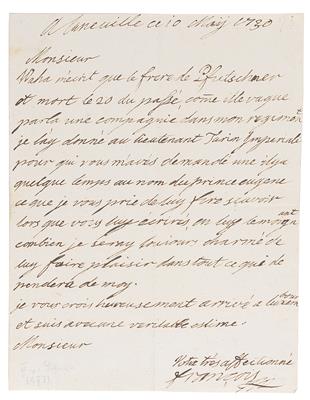 A Luneville ce 10 Maij 1730
Monsieur
Vasta m'ecrit que le frere de Pfutschner
et mort le 20 du passé, come ille vaque
parla une compagnie dans mon regiment
je l'ay donné au lieutenant Tarin Imperiale
pour qui vous m'avés demandé une ilya
quelque temps au nom du prince eugene
ce que je vous prie de luy fere scavoir
lors que vous luy écrirés, en luy temoignant
combien je seray toujours charmé de
luy faire plaisir dans tout ce qué de
pendera de moy.
je vous crois heureusement arrivé a luxembour
et suis avec une veritable estime.
Monsieur
Votre tres affectionné
François